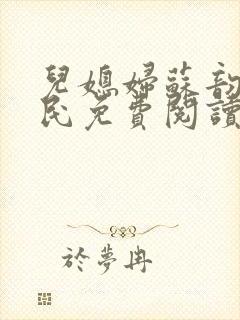 兒媳婦蘇韵
民免費閱讀
於夢冉